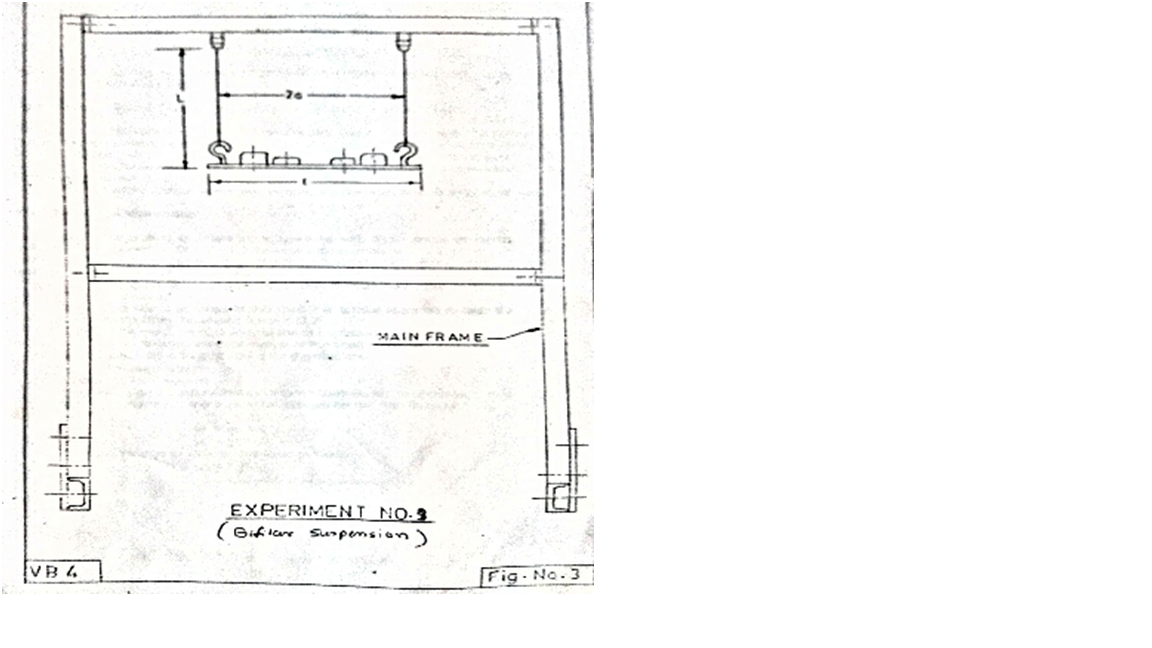 L
2a
MAIN FRAME
EXPERIMENT NO.3
(Bifilar Suspension)
VB 4
Fig. No. 3